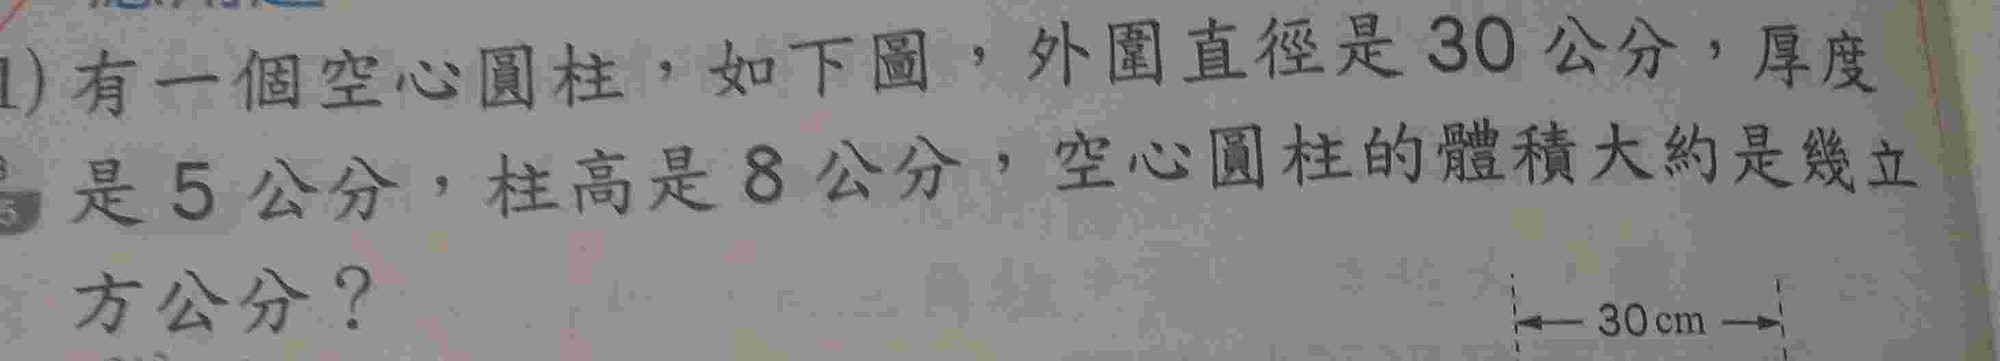 1)有一個空心圓柱，如下圖，外圍直徑是30公分，厚度
是5公分，柱高是8公分，空心圓柱的體積大約是幾立
方公分？
30cm